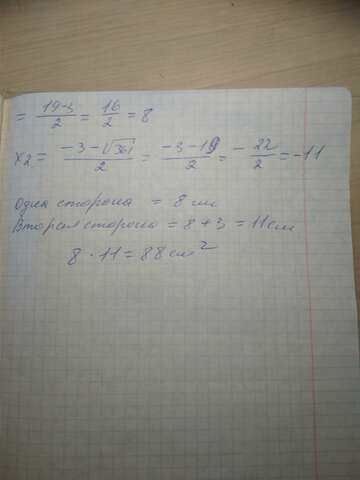 = 19-3/2 = 16/2 = 8
x2 = -3-√361/2 = -3-19/2 = -22/2 = -11
Одна сторона = 8 см
Вторая сторона = 8+3 = 11 см
8 · 11 = 88 см²